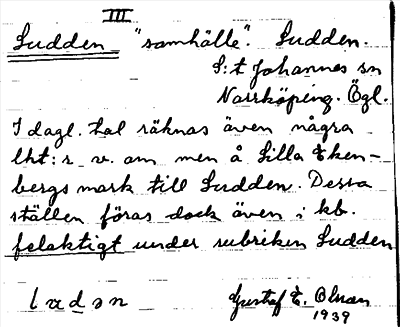 III
Sudden "samhälle". Sudden.
S:t Johannes sn
Norrköping. Ögl.
I dagl. tal räknas även några
lht:r v. om men å Lilla Eken-
bergs mark till Sudden. Dessa
ställen föras dock även i kb.
felaktigt under rubriken Sudden
Gustaf E.
1939